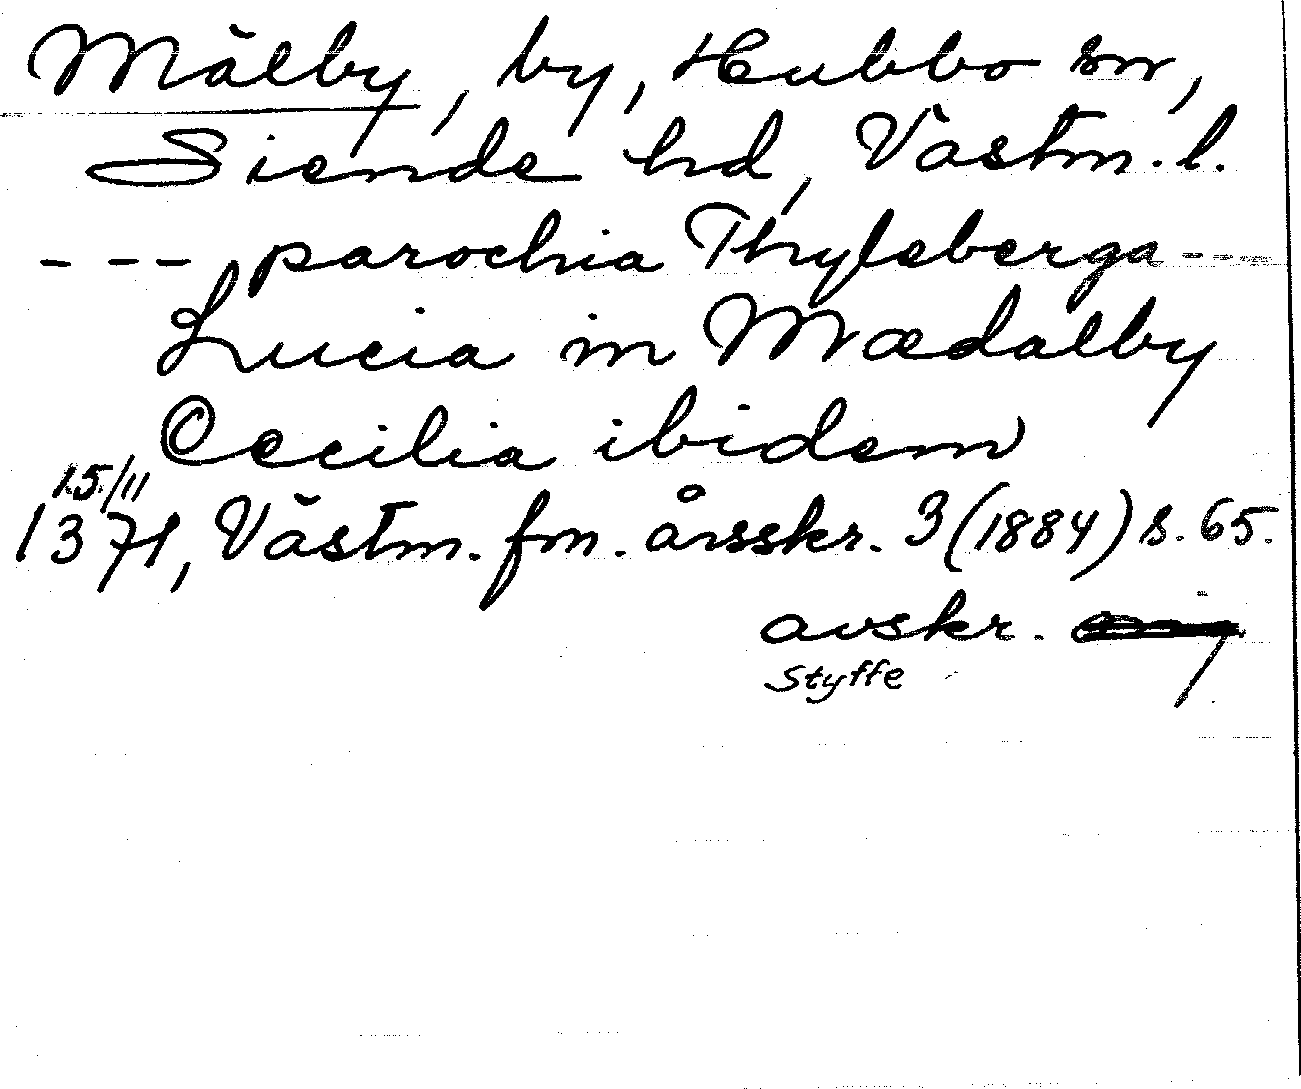 Mälby, by, Hubbo sn,
Siende hd, Västm. l.
--- parochia Thyleberga ---
Lucia in Mædalby
Cecilia ibidem
15/11
1371, Västm. fm. årsskr. 3 (1884) s. 65.
avskr.
Styffe